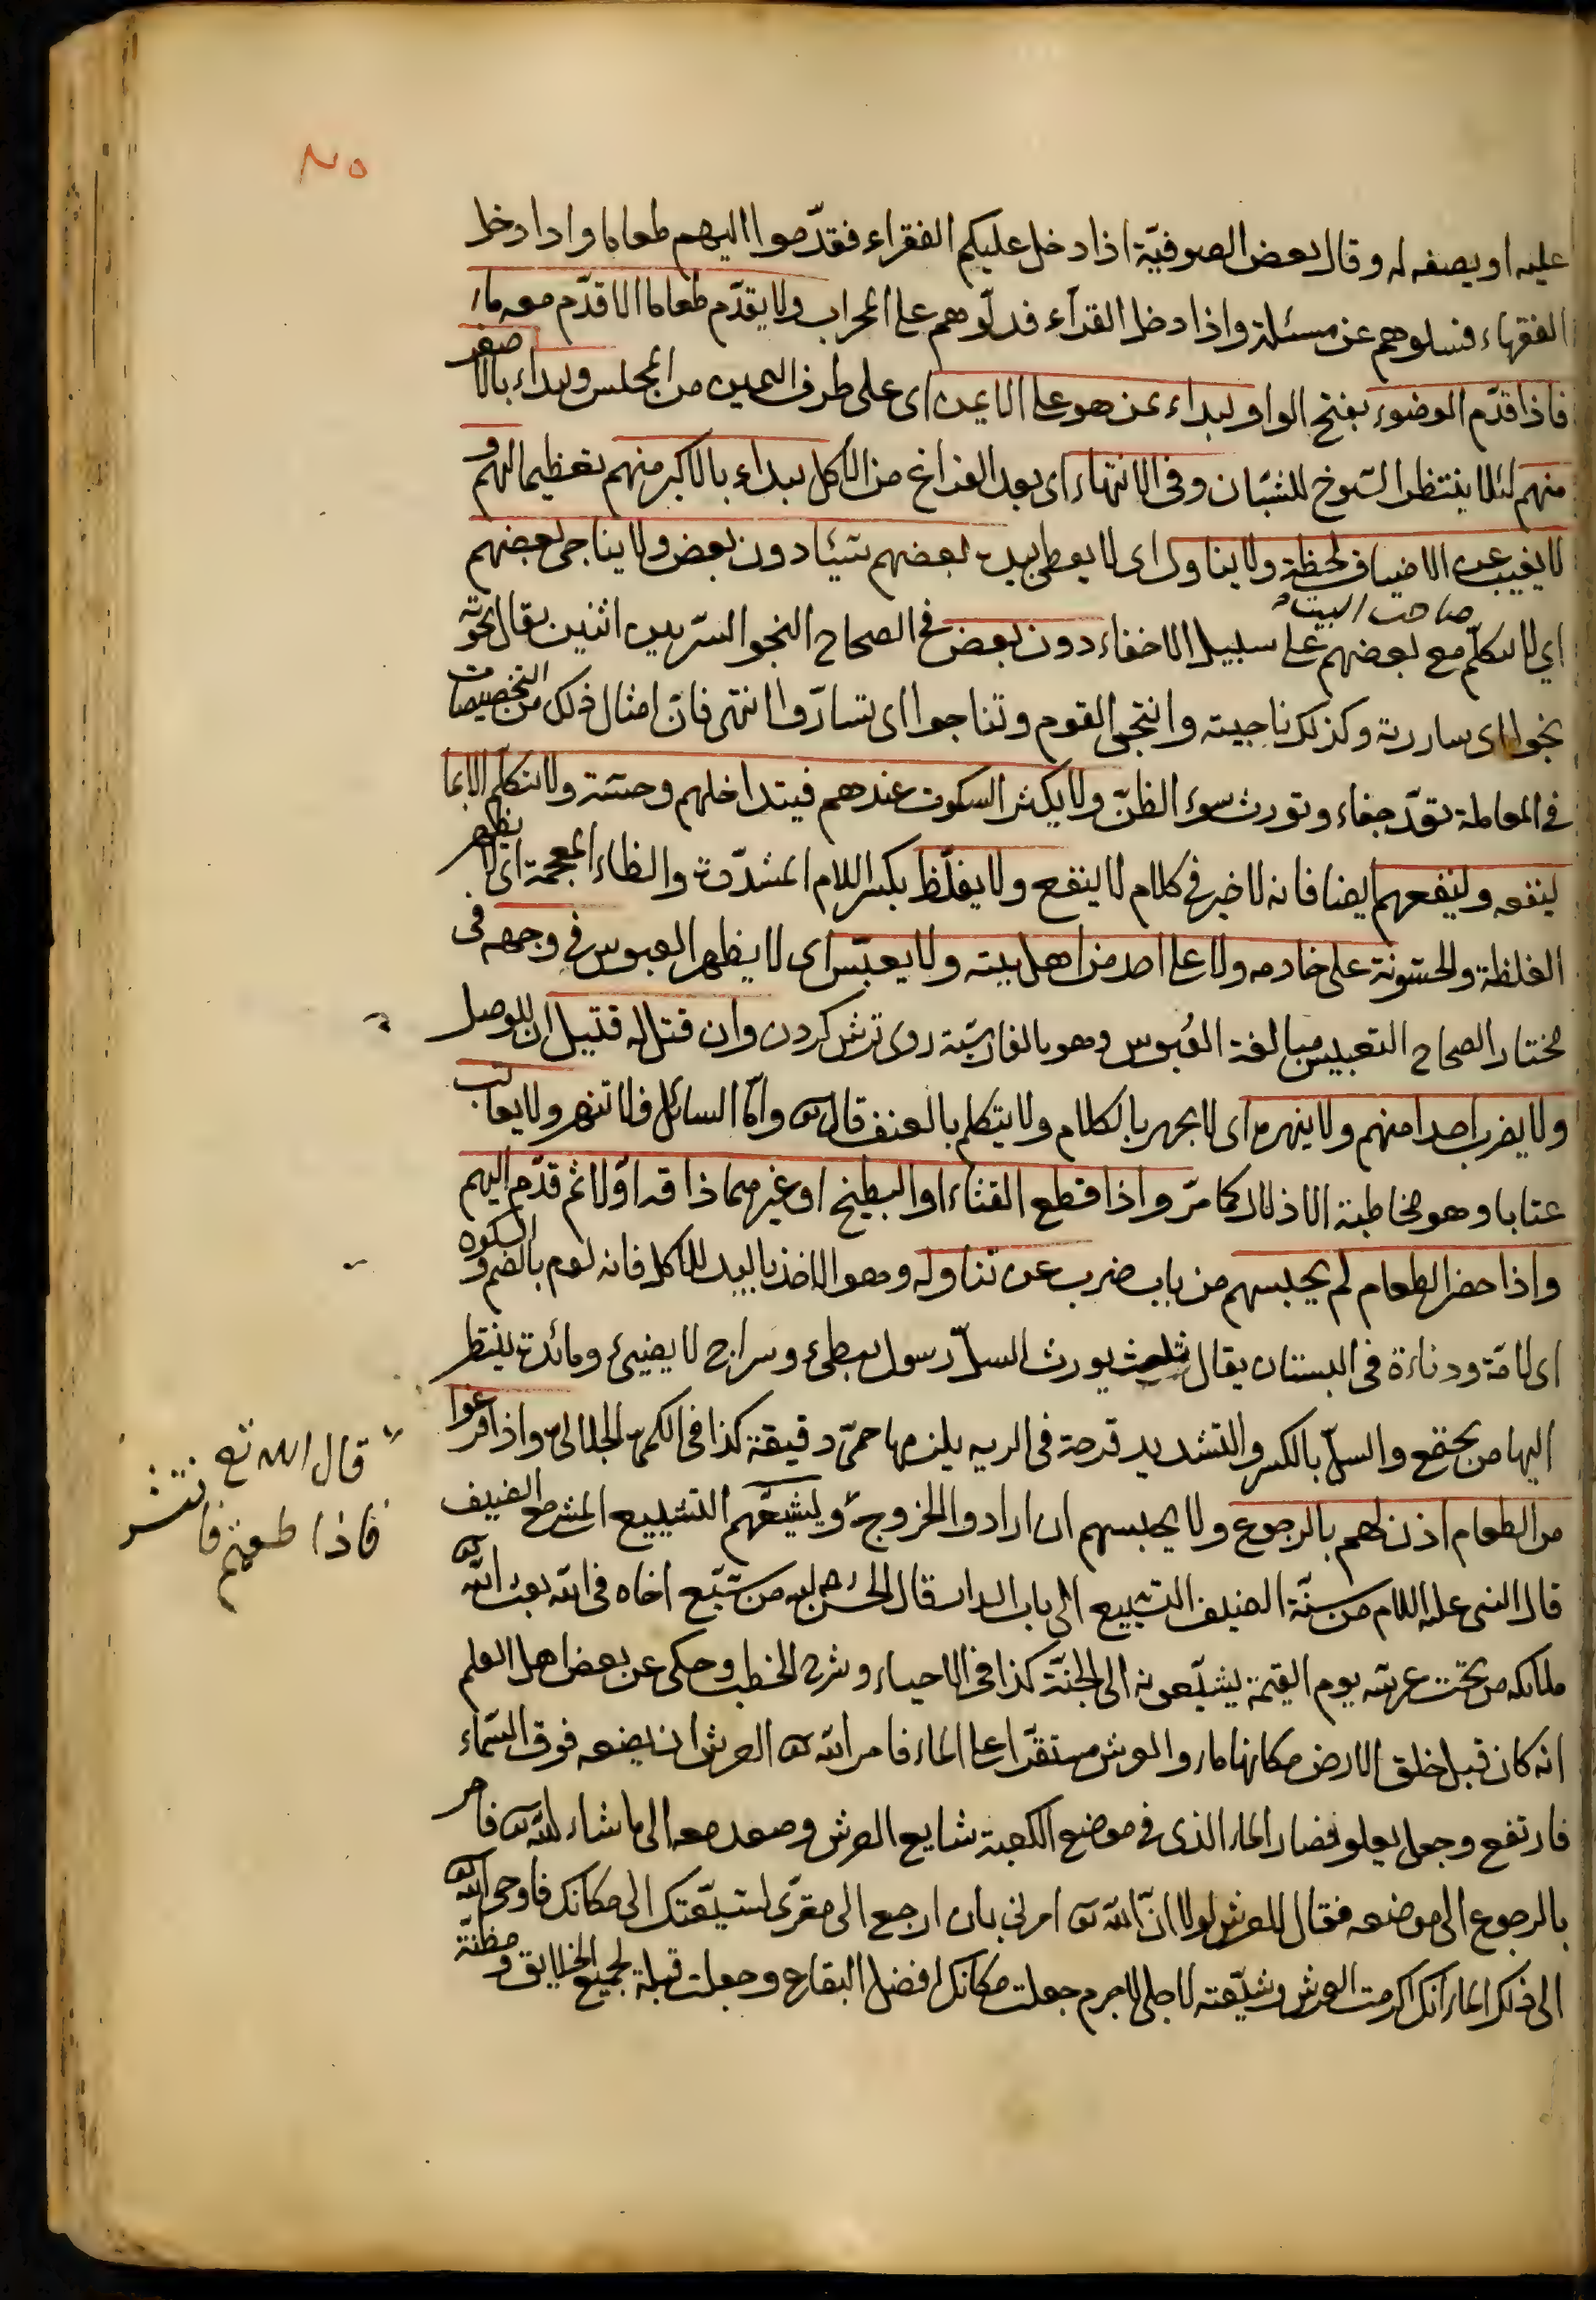 عليه او يصفه له وقال بعض الصوفيّة اذا دخل عليكم الفقراء فقدّموا اليهم طعاما واذا دخل
الفقهاء فسلوهم عن مسئلة واذا دخل القرّاء فدلّوهم على المحراب ولا يقدّم طعاما الا قدّم معه ماء
فاذا قدّم الوضوء بفتح الواو يبداء بمن هو على الايمن اى على طرف اليمين من المجلس ويبداء بالاصغر
منهم لئلا ينتظر الشيوخ للشبّان وفى الانتهاء اى بعد الفراغ من الاكل يبداء بالاكبر منهم تعظيما لهم و
لا يغيب عن الاضياف لحظة ولا يناول اى لا يعطى بيده بعضهم شيئا دون بعض ولا يناجى بعضهم
صاحب البيت
اي لا يتكلّم مع بعضهم على سبيل الاخفاء دون بعض فى الصحاح النجو السرّ بين اثنين يقال نجوته
نجوا اى ساررته وكذلك ناجيته وانتجى القوم وتناجوا اى تسارّوا انتهى فانّ امثال ذلك من التخصيصات
فى المعاملة جفاء وتورث سوء الظنّ ولا يكثر السكوت عندهم فيتداخلهم وحشة ولا يتكلّم الا بما
ينفعه وينفعهم ايضا فانه لا خير فى كلام لا ينفع ولا يغلّظ بكسر اللام المشدّدة والظاء المعجمة اى لا يظهر
الغلظة والخشونة على خادمه ولا على احد من اهل بيته ولا يعبّس اى لا يظهر العبوس فى وجهه فى
مختار الصحاح التعبيس مبالغة العُبوس وهو بالفارسيّة روى ترش كردن وان قتل له قتيل ان للوصل
ولا يضرب احدا منهم ولا ينهره اى لا يجهر بالكلام ولا يتكلم بالعنف قال تع وامّا السائل فلا تنهر ولا يعاتب
عتابا وهو مخاطبة الاذلال كما مرّ واذا قطع القثاء او البطيخ او غيرهما ذاقه اوّلا ثم قدّم اليهم
واذا حضر الطعام لم يحبسهم من باب ضرب عن تناوله وهو الاخذ باليد للاكل فانه لوم بالضم و السكون
اى لامة ودناءة فى البستان يقال ثلث يورث السلّ رسول بطىء وسراج لا يضيئ ومائدة ينتظر
اليها من يجتمع والسلّ بالكسر والتشديد قرحة فى الريه يلزمها حمّى دقيقة كذا فى الجلالى واذا فرغوا
من الطعام اذن لهم بالرجوع ولا يحبسهم ان ارادوا الخروج ويشيّعهم التشييع الضيف
قال النبى عليه اللام من سنّة الضيف التشييع الى باب الدار قال الحسن رحمه الله من شيّع اخاه فى الله بعث الله تع
ملائكه من تحت عرشه يوم القيمة يشيّعونه الى الجنّة كذا فى الاحياء وشرح الخطب وحكى عن بعض اهل العلم
انه كان قبل خلق الارض مكانها ماء والعرش مستقرّا على الماء فامر الله تع العرش ان يضعه فوق السّماء
فارتفع وجعل يعلو فصار الماء الذى فى موضع الكعبة شايع العرش وصعد معه الى ما شاء الله تع فامر
بالرجوع الى موضعه فقال للعرش لولا انّ الله تع امرنى بان ارجع الى مقرّى لشيّعتك الى مكانك فاوحى الله تع
الى ذلك الماء انك اكرمت العرش وشيّعته لاجلى لاجرم جعلت مكانك افضل البقاع وجعلت قبلة لجميع الخلايق ومظنّة
قال الله تع
فاذا طعمتم فانتشروا